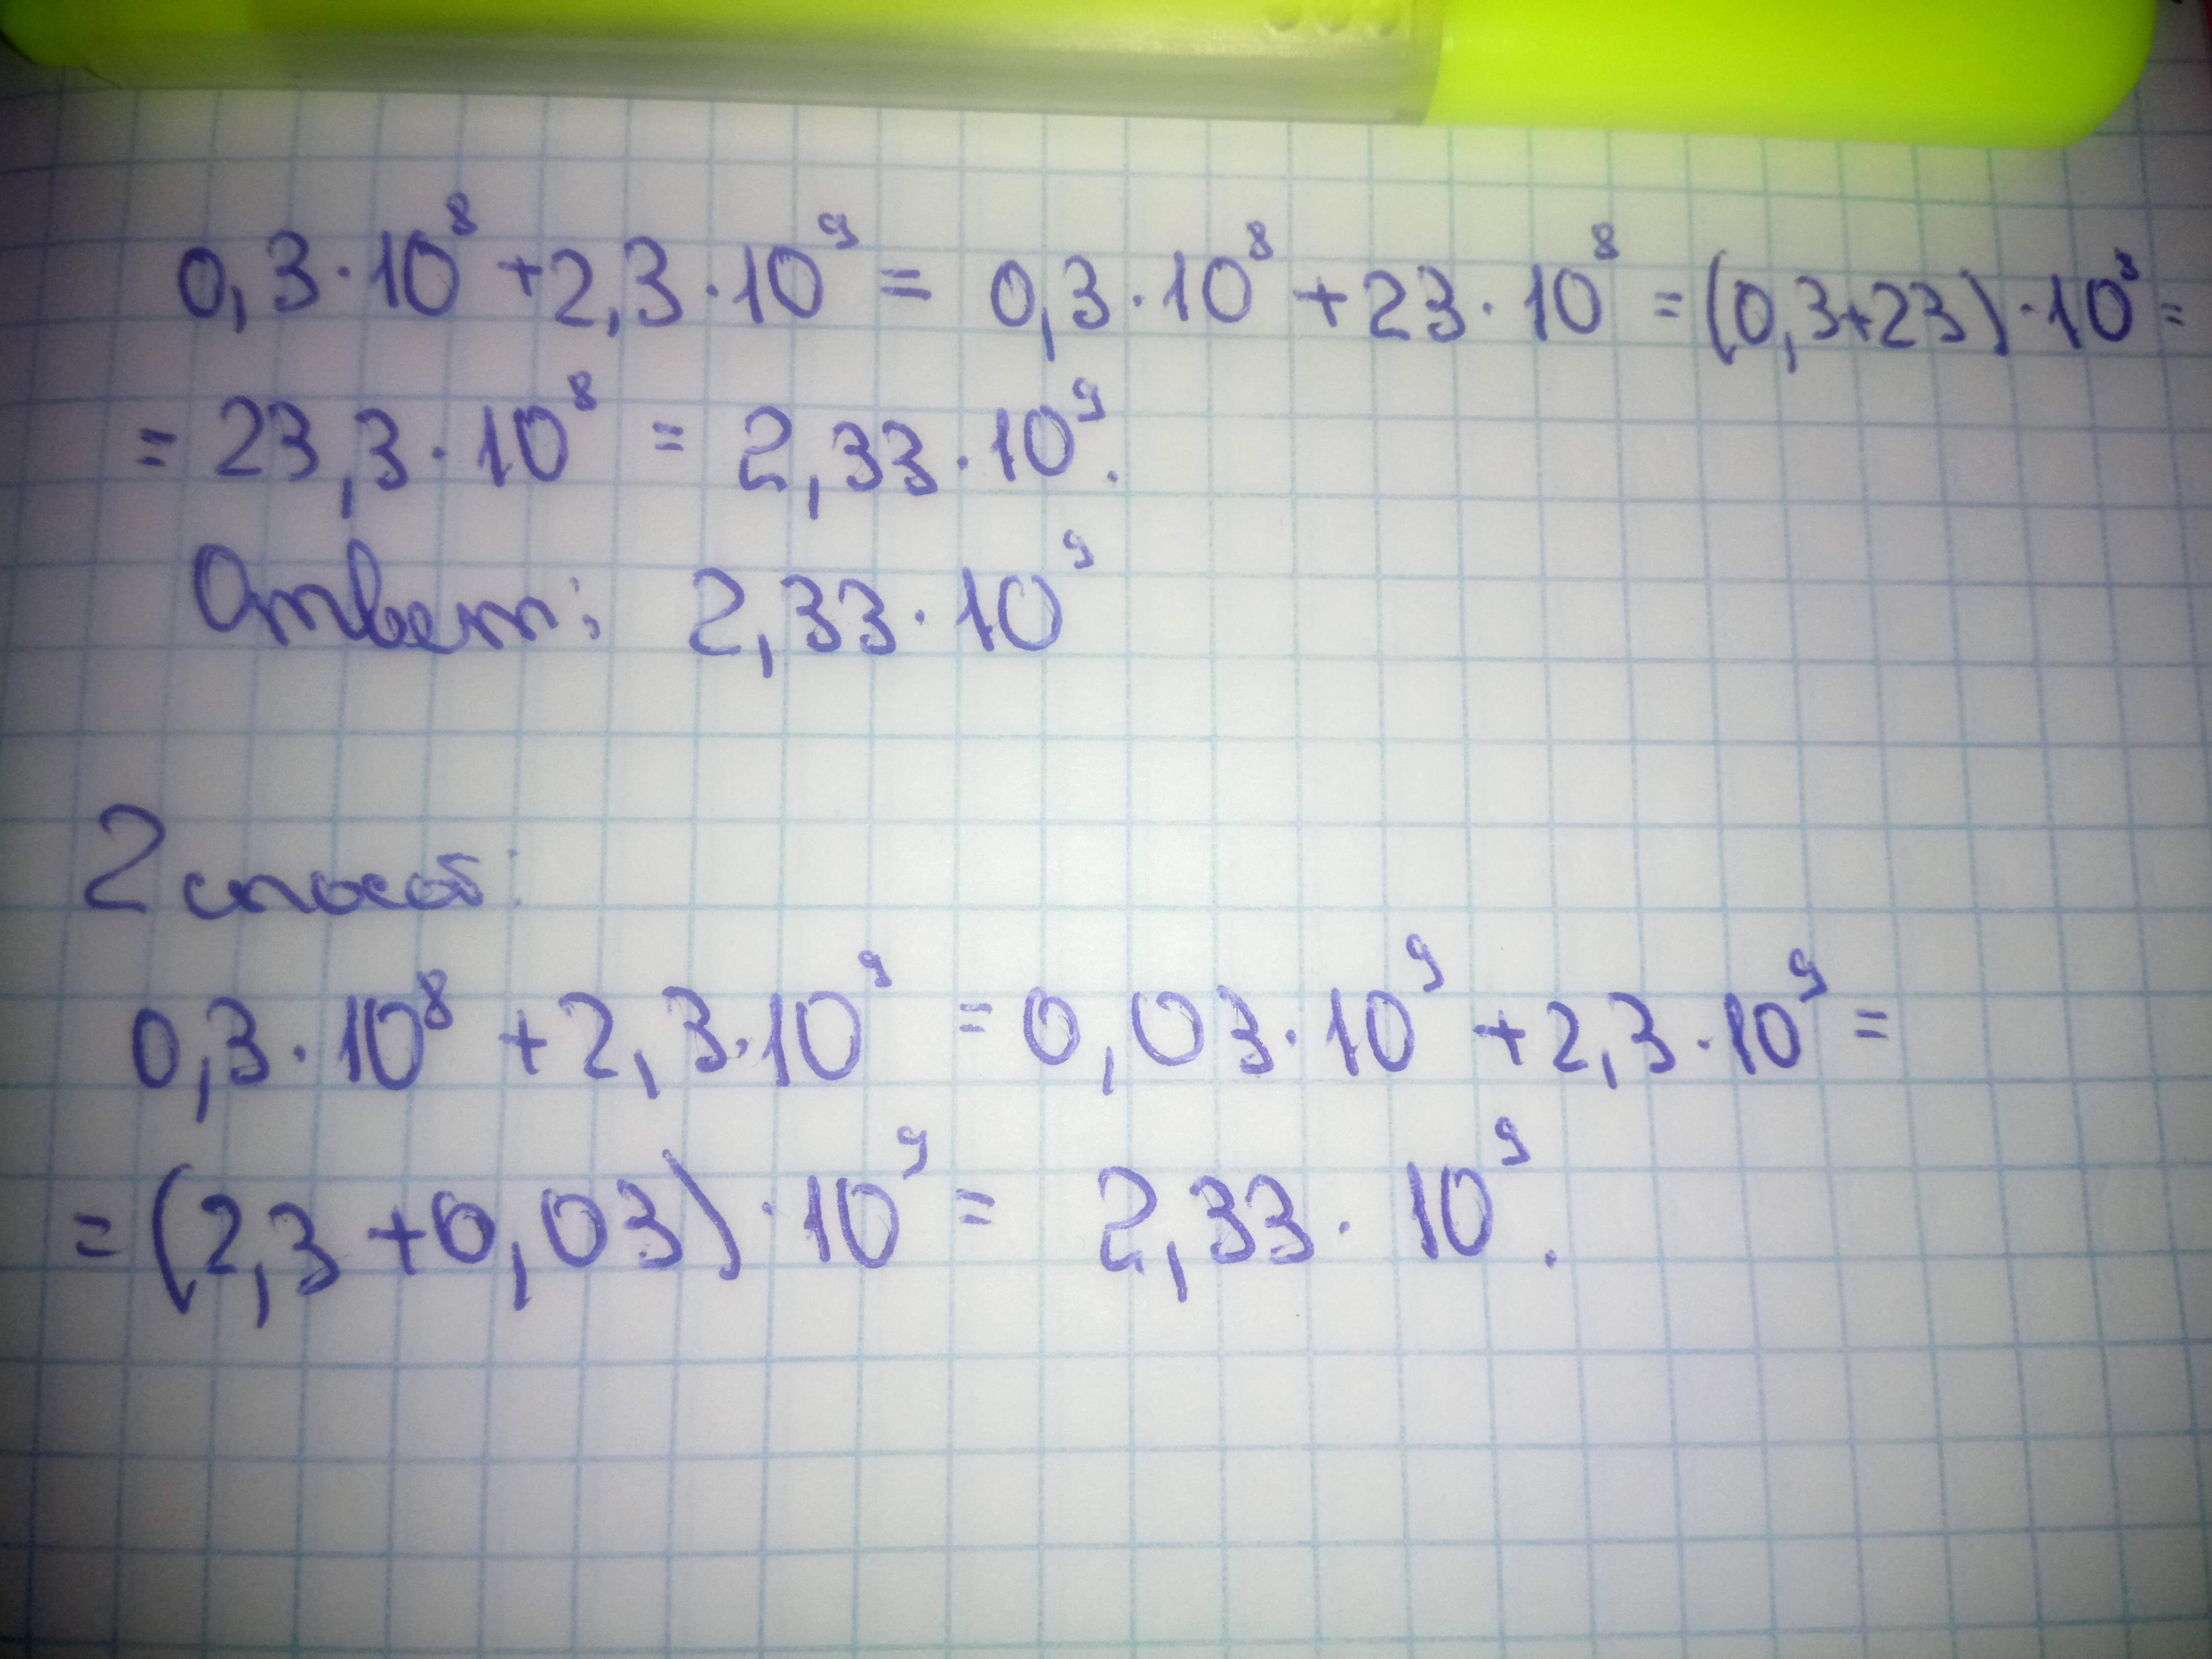 0,3·10⁸+2,3·10⁹ = 0,3·10⁸+23·10⁸ =(0,3+23)·10⁸=
= 23,3·10⁸ = 2,33·10⁹.
Ответ: 2,33·10⁹
2 способ:
0,3·10⁸ +2,3·10⁹ =0,03·10⁹ +2,3·10⁹=
=(2,3+0,03)·10⁹= 2,33·10⁹.